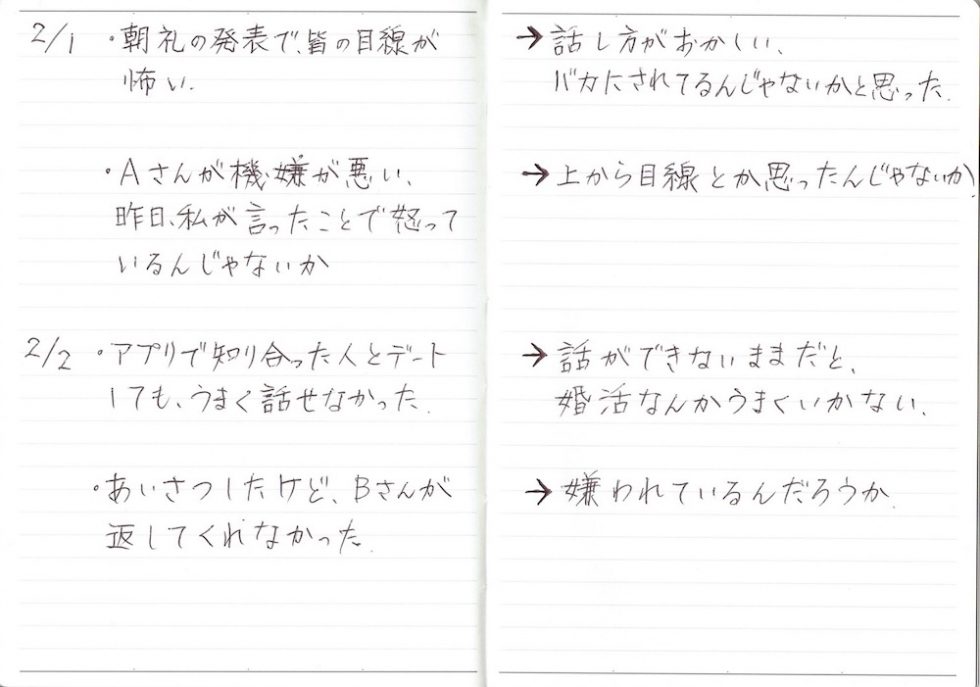 2/1 ・朝礼の発表で、皆の目線が
怖い.
→ 話し方がおかしい、
バカにされてるんじゃないかと思った.
・Aさんが機嫌が悪い、
昨日、私が言ったことで怒って
いるんじゃないか
→ 上から目線とか思ったんじゃないか.
2/2 ・アプリで知り合った人とデート
しても、うまく話せなかった.
→ 話ができないままだと、
婚活なんかうまくいかない.
・あいさつしたけど、Bさんが
返してくれなかった.
→ 嫌われているんだろうか.